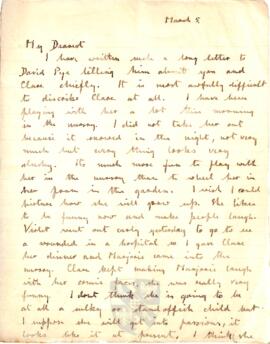 March 8
My Dearest
I have written such a long letter to
David Pye telling him about you and
Clare chiefly. It is most awfully difficult
to describe Clare at all. I have been
playing with her a lot this morning
in the nursery. I did not take her out
because it snowed in the night, not very
much but every thing looks very
slushy. Its much more fun to play with
her in the nursery than to wheel her in
her pram in the garden. I wish I could
picture how she will grow up. She likes
to be funny now and make people laugh.
Violet went out early yesterday to go to see
a wounded in a hospital so I gave Clare
her dinner and Marjorie came into the
nursery. Clare kept making Marjorie laugh
with her comic faces, she was really very
funny. I dont think she is going to be
at all a sulky or standoffish child but
I suppose she will get into passions, it
looks like it at present. I think she